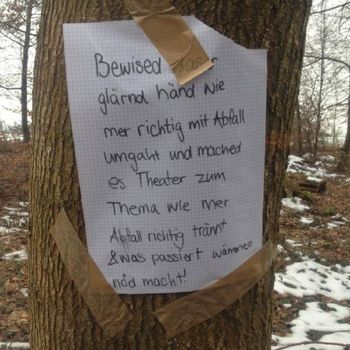 Bewised
glärnd händ wie
mer richtig mit Abfall
umgaht und mached
es Theater zum
Thema wie mer
Abfall richtig trännt
& was passiert wämmes
nöd macht!